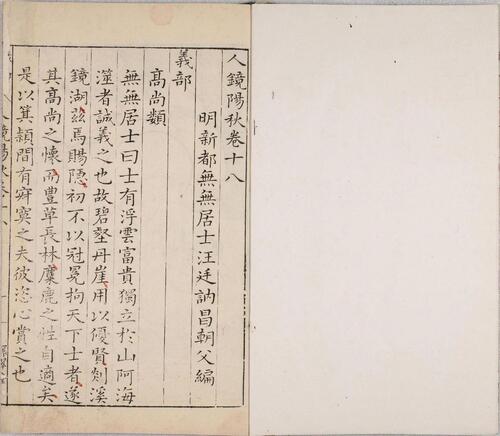 人鏡陽秋卷十八
明新都無無居士汪廷訥昌朝父編
義部
高尚類
無無居士曰士有浮雲富貴獨立於山阿海
澨者誠義之也故碧壑丹崖用以優賢剡溪
鏡湖兹焉賜隱初不以冠冕拘天下士者遂
其高尚之懷而豊草長林麋鹿之性自適矣
是以箕潁間有寂寞之夫彼恣心賞之也
人鏡陽秋卷十八